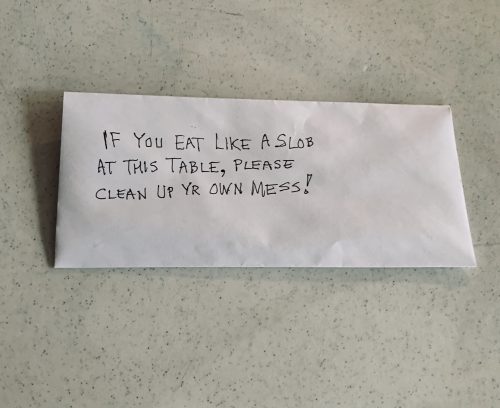 IF YOU EAT LIKE A SLOB
AT THIS TABLE, PLEASE
CLEAN UP YR OWN MESS!